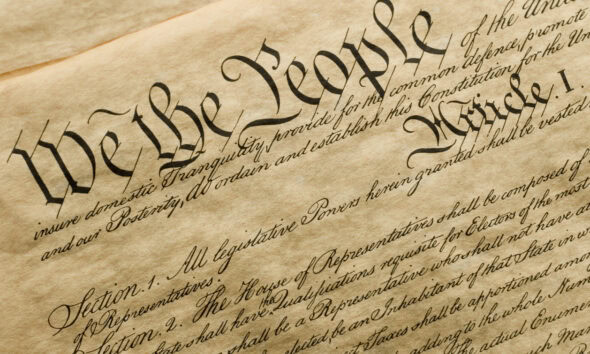 We the People of the
insure domestic Tranquility, provide for the common defence, promote
and our Posterity, do ordain and establish this Constitution for the
Article. I.
Section. 1. All legislative Powers herein granted shall be vested
of Representatives.
Section. 2. The House of Representatives shall be composed of
shall have the Qualifications requisite for Electors of the most
shall be a Representative who shall not have
elected, be an Inhabitant of that State in
Taxes shall be apportioned
adding to the whole Num
actual Enumer